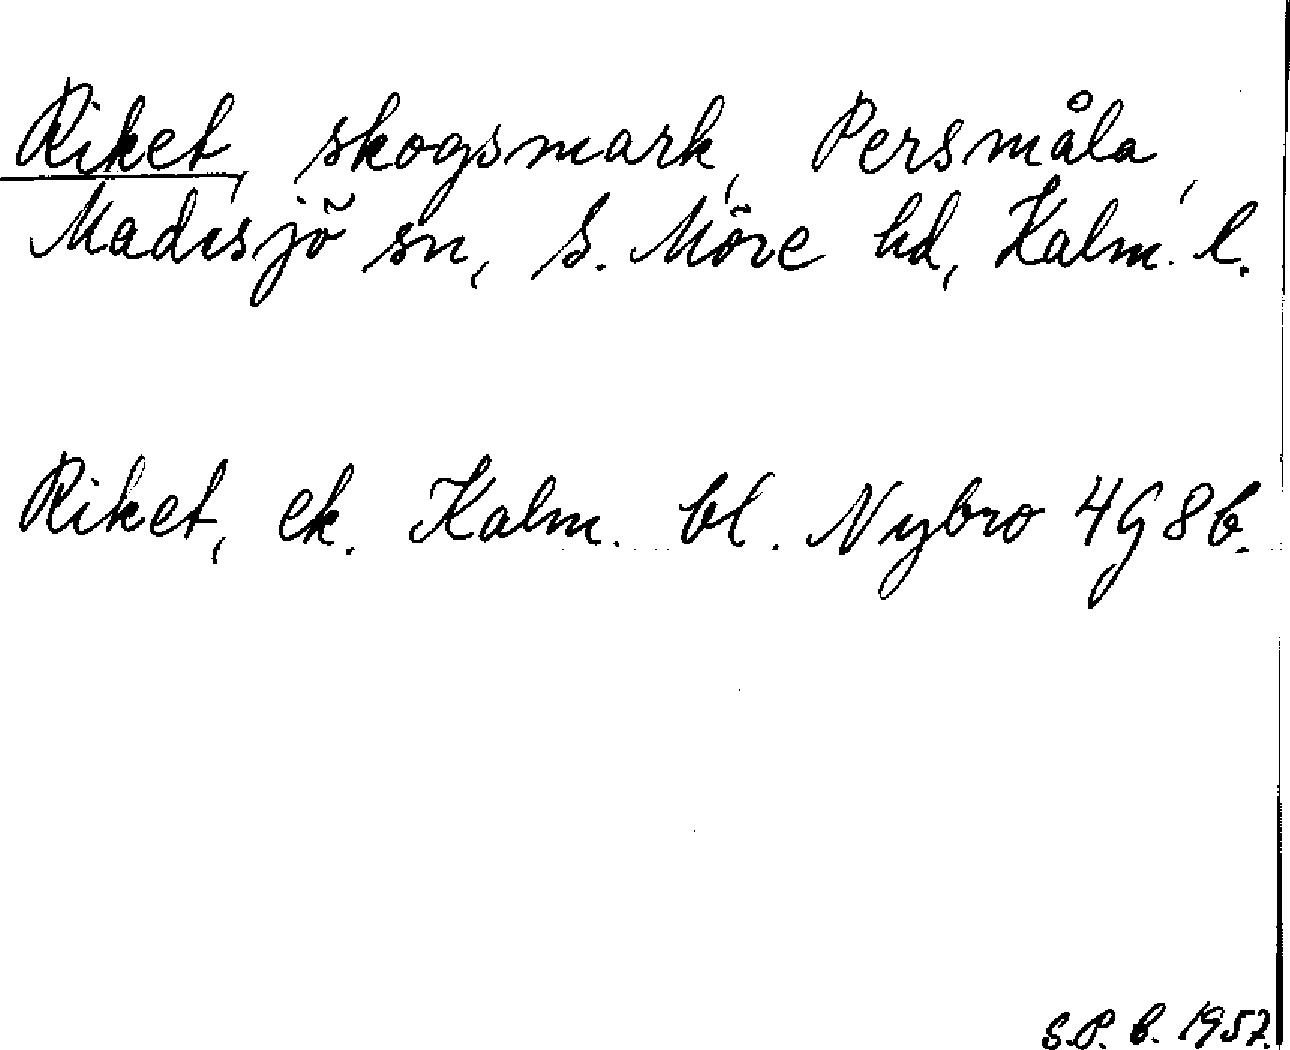 Riket, skogsmark, Persmåla,
Madesjö sn, S. Möre hd, Kalm. l.
Riket, ek. Kalm. bl. Nybro 4G 8b.
S.P. B. 1957.